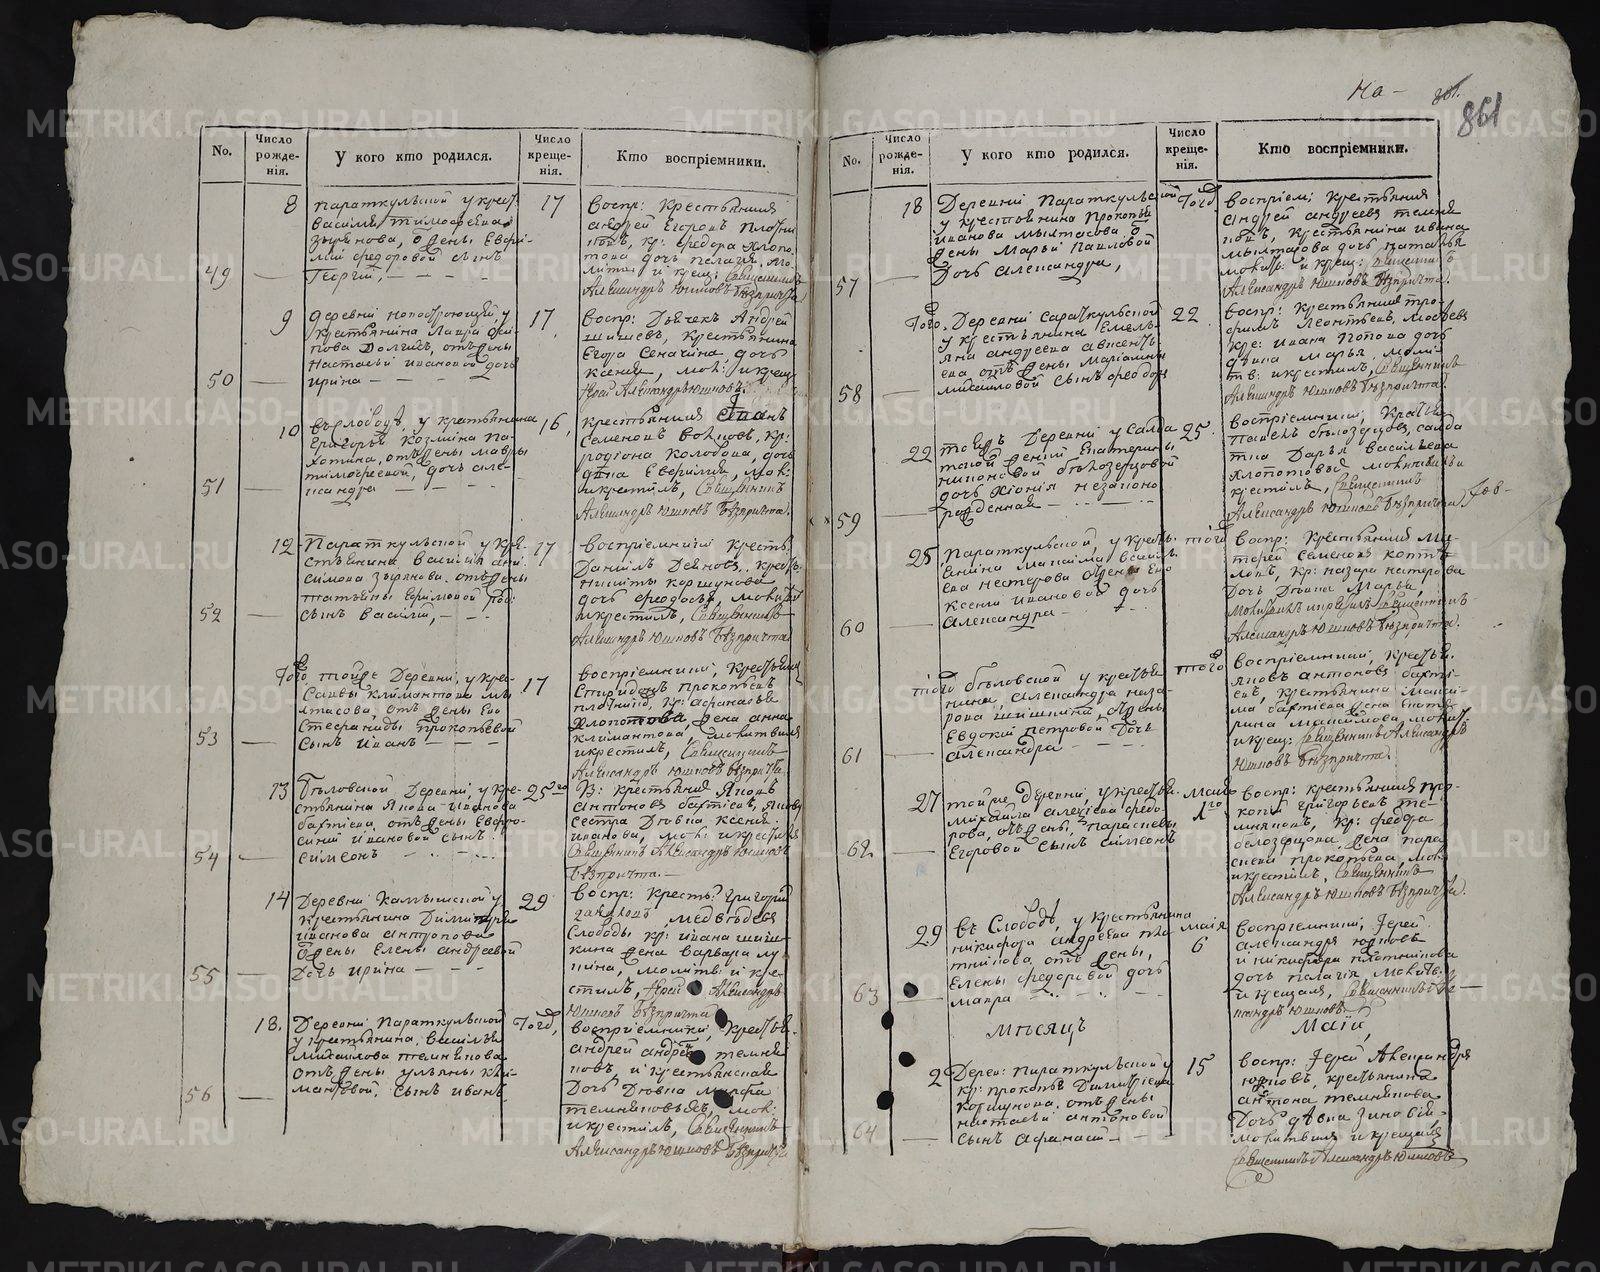 На –
861
No.
Число рожде-нія.
У кого кто родился.
Число креще-нія.
Кто воспріемники.
8
Параткульской у крест.
Василья Тимофеева
Зырянова, от жены Евфи-
мии Федоровой сынъ
49
Георгій,
17
воспр: крестьянинъ
Андрей Егоровъ Плотни
ковъ, кр: Федора Хлопо-
това дочь Пелагия, мо-
литв: и крещ: Священникъ
Александръ Юшковъ безпричта.
9
деревни
крестьянина Лавра
отъ жены
Настасьи Ивановой дочь
50
Ирина
17
воспр: Дьячекъ Андрей
Шишевъ, крестьянина
Егора Сеначина дочь
Ксения, мол: и крещ:
Іерей Александръ Юшковъ
10
въ слободѣ, у крестьянина
Григорья Козмина Па-
хотина, отъ жены Мавры
Тимофеевой, дочь але-
51
ксандра
16,
крестьянинъ Степанъ
Семеновъ Волковъ, кр:
Родіона Колобова, дочь
дѣвка Евфимия, мол:
и крестилъ, Священникъ
Александръ Юшковъ безпричта.
12
Параткульской у кре-
стьянина Василія ани-
симова Зырянова, отъ жены
Татьяны Ефимовой род:
52
сынъ Василій,
17
воспріемники Кресть:
Даніилъ Деяновъ, крест:
Никиты Коршунова
дочь Феодосья, молит:
и крестилъ, Священникъ
Александръ Юшковъ безпричта.
Того
тойже Деревни, у кре-
Савы Климантова мы
лтасова, отъ жены Его
Стефаниды Прокопьевой
53
сынъ Иванъ
17
воспріемники, крестьянинъ
Спиридонъ Прокопьевъ
Плотникъ, кр: Афанасья
Хлопотова, жена анна
климантова, молитвилъ
и крестилъ, Священникъ
Александръ Юшковъ безпричта.
13
Бѣловской Деревни, у кре-
стьянина Якова Иванова
бахтіева, отъ жены Евфро-
синіи Ивановой сынъ
54
Симеонъ
25го
В: крестьянинъ Яковъ
антоновъ бахтіевъ, Якову
Сестра Дѣвка Ксения
Иванова, мол: и крестилъ
Священникъ Александръ Юшковъ
безпричта.
14
Деревни Камышской у
крестьянина Димитрия
Иванова антропова
от жены Елены андреевой
55
дочь Ирина
29
Воспр: Кресть: Григорий
Слободы кр: Ивана Шиш-
кина жена Варвара лу
кина, молитв: и кре-
стилъ, Іерей Александръ
Юшковъ безпричта
18.
Деревни Параткульской
у крестьянина, Василья
Михайлова Темникова
отъ жены ульяны Кли-
56
мантовой, сынъ Иванъ
Того,
воспріемники, крестья.
андрей андреевъ темни
ковъ, и крестьянская
дочь дѣвка Марфа
темниковыхъ, мол:
и крестилъ, Священникъ
Александръ Юшковъ безпричта
No.
Число рожде-нія.
У кого кто родился.
Число креще-нія.
Кто воспріемники.
18
Деревни Параткульской
у крестьянина Прокопья
Иванова Мылтасова от
жены Марьи Павловой
57
Дочь Александра,
Того
воспріем; Крестьянинъ
андрей андреевъ темни
ковъ, крестьянина Ивана
мылтасова дочь наталья
молитв: и крещ: Священникъ
Александръ Юшковъ безпричта.
Того.
Деревни Сараткульской
у крестьянина Емель-
яна андреева
отъ жены Маріамны
58
михайловой сынъ Феодоръ
22
воспр: крестьянинъ тро-
фимъ леонтьевъ,
кре: ивана попова дочь
дѣвка марья моли-
тв: и крестилъ, Священникъ
Александръ Юшковъ безпричта.
22
Деревни у салда
тской жены Екатерины
никоновой бѣлозерцовой
дочь Хіонія незаконо
59
рожденная
25
воспріемники; Кре
Павелъ бѣлозерцовъ, салда
тка Дарья васильева
хлопотовыхъ молитвилъ и
крестилъ, Священникъ
Александръ Юшковъ безпричта
25
Параткульской, у кресть-
янина Максима василь
ева нестерова от жены Его
Ксении Ивановой дочь
60
александра
того
Воспр: Крестьянинъ Ми-
семеновъ
кр: назара нестерова
дочь Дѣвка Марья,
молитвилъ и крестилъ Священникъ
Александръ Юшковъ безпричта.
того
бѣловской у крестья-
нина, александра наза-
рова шишкина, от жены
Евдокіи Петровой дочь
61
александра
того
Воспріемники, крестья.
яковъ антоновъ бахті-
евъ, крестьянина макси-
ма бахтіева жена екате-
рина максимова, молит.
и крещ: Священникъ Александръ
Юшковъ безпричта.
27
тойже деревни, у крестья-
Михаила алексеева федо-
рова, отъ жены, параскевы
62
Егоровой сынъ симеонъ
Маія
1го
воспр: крестьянинъ Про-
копій григорьевъ те-
мняковъ, кр: федора
белозерцова, жена пара
скева прокопьева, мол:
и крестилъ, Священникъ
Александръ Юшковъ безпричта.
29
въ Слободѣ, у крестьянина
никифора андреева пло-
тникова, отъ жены,
Елены федоровой дочь
63
мавра
маія
6
воспріемники, Іерей
александръ юшковъ
и никифора плотникова
дочь пелагія, молитв:
и крещалъ, Священникъ Але-
ксандръ Юшковъ.
мѣсяцъ
Маій
2
Дерев: Параткульской у
кр: прокопья Димитріева
коршунова, отъ жены
настасьи антоновой
64
сынъ афанасій
15
воспр: Іерей Александръ
юшковъ, крестьянина
антона темникова
дочь дѣвка зиновія
молитвилъ и крещалъ
Священникъ Александръ Юшковъ